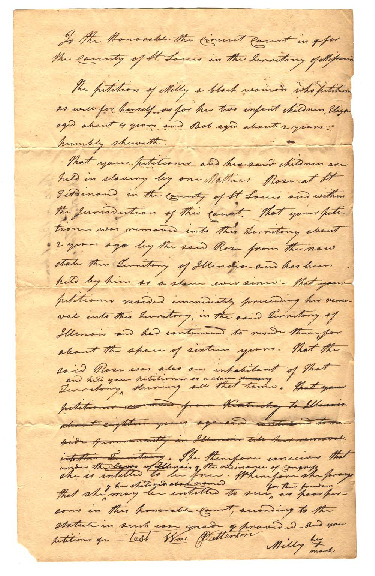 To the Honorable the Circuit Court in & for
the County of St Louis in the Territory of Missouri
The petition of Milly a black woman who petitions
as well for herself as for her two infant children Eliza
aged about 4 years and Bob aged about 2 years:
humbly sheweth
That your petitioner and her said children are
held in slavery by one Mathias Rose at St
Ferdinand in the County of St Louis and within
the Jurisdiction of this court. That your peti-
tioner was removed into this Territory about
2 years ago by the said Rose from the now
state then Territory of Illinois and has been
held by him as a slave ever since. That your
petitioner resided immediately preceding her remo-
val into this Territory, in the said Territory of
Illinois and had continued to reside therefor
about the space of sixteen years. That the
said Rose was also an inhabitant of that
and held your petitioner as a slave
Territory, during all that time. That your
petitioner from Kentucky to Illinois
about eighteen years ago and
into this Territory. She therefore conceives that
under the laws of Illinois & the ordinance of congress
she is entitled to her freedom. Wherefore she prays
that she may be entitled to sue, as poor per-
sons in this honorable court, according to the
statute in such case made & provided. and your
petitioner &c Test Wm Petterson
Milly her
mark